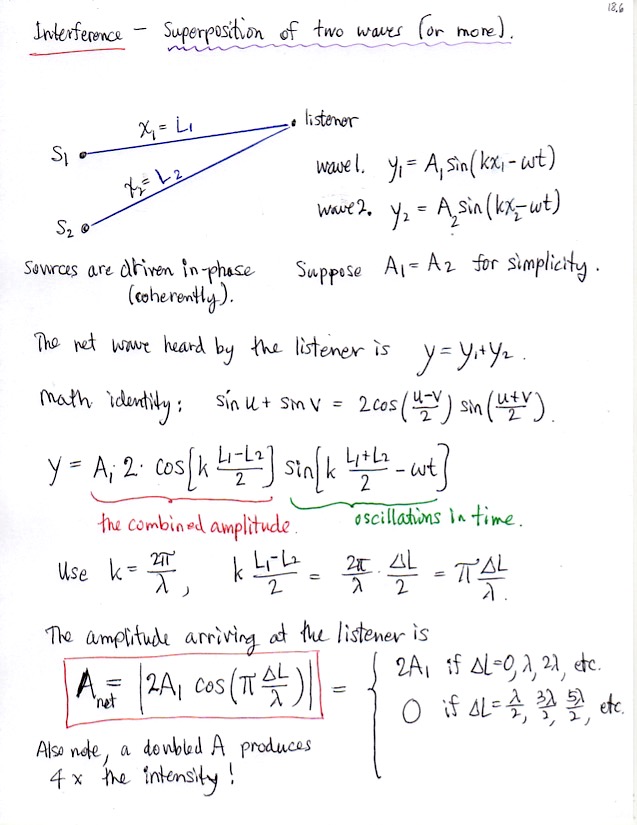 18.6
Interference - Superposition of two waves (or more).
x₁ = L₁
listener
S₁
x₂ = L₂
wave 1. y₁ = A₁ sin(kx₁ - ωt)
S₂
wave 2. y₂ = A₂ sin(kx₂ - ωt)
Sources are driven in-phase Suppose A₁ = A₂ for simplicity.
(coherently).
The net wave heard by the listener is y = y₁ + y₂.
Math identity: sin u + sin v = 2 cos((u-v)/2) sin((u+v)/2).
y = A₁ 2 · cos[k (L₁-L₂)/2] sin[k (L₁+L₂)/2 - ωt]
the combined amplitude. oscillations in time.
Use k = 2π/λ, k (L₁-L₂)/2 = 2π/λ · ΔL/2 = π ΔL/λ.
The amplitude arriving at the listener is
A_net = |2A₁ cos(π ΔL/λ)| = { 2A₁ if ΔL = 0, λ, 2λ, etc.
0 if ΔL = λ/2, 3λ/2, 5λ/2, etc.
Also note, a doubled A produces
4 x the intensity!